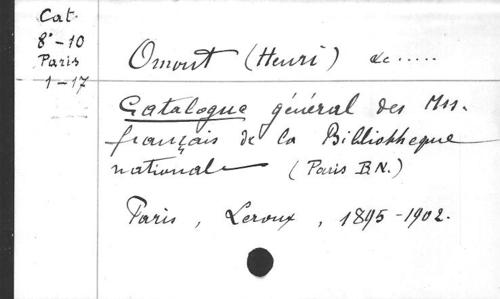 Cat.
8° - 10
Paris
1 - 17
Omont (Henri) &c .....
Catalogue général des Mss.
français de la Bibliotheque
nationale (Paris B.N.)
Paris, Leroux, 1895-1902.